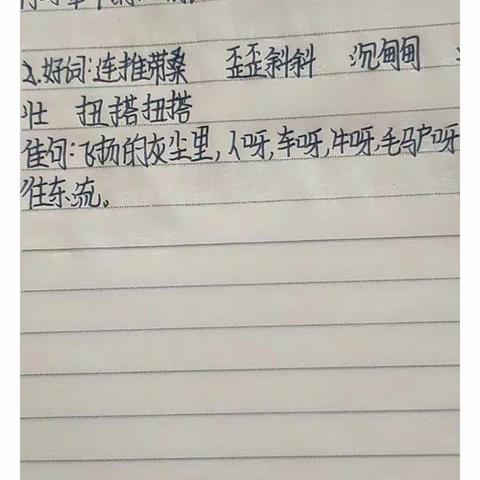 2.好词:连推带桑 歪歪斜斜 沉甸甸
壮 扭搭扭搭
佳句:飞扬的灰尘里,人呀,车呀,牛呀,毛马户呀
往东流。